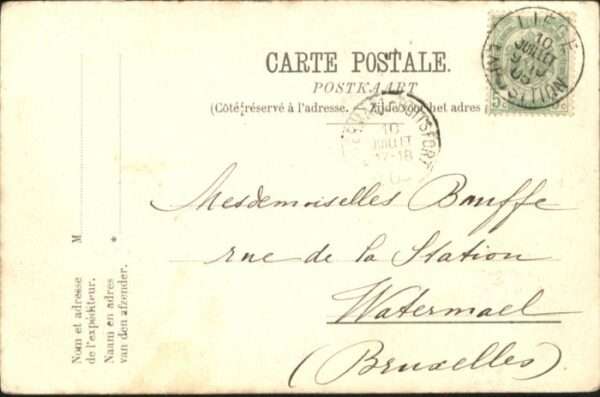 CARTE POSTALE.
POSTKAART
(Côté réservé à l'adresse. — Zijde voor het adres
LIÉGE
10
JUILLET
1905
EXPOSITION
5c
10
JUILLET
17-18
Mesdemoiselles Bauffe
rue de la Station
Watermael
(Bruxelles)
M
*
Nom et adresse
de l'expéditeur.
Naam en adres
van den afzender.